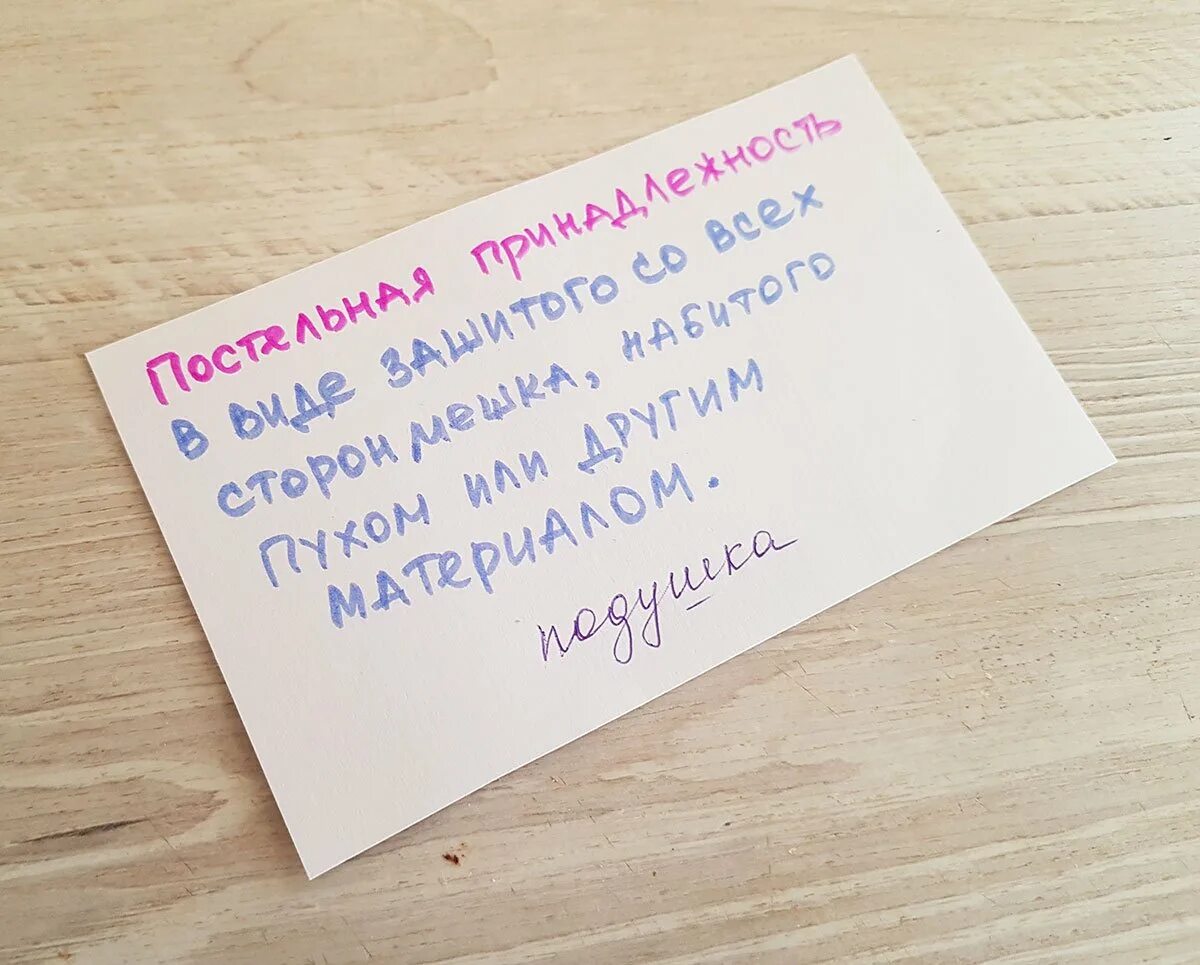 Постельная принадлежность
в виде зашитого со всех
сторон мешка, набитого
пухом или другим
материалом.
подушка